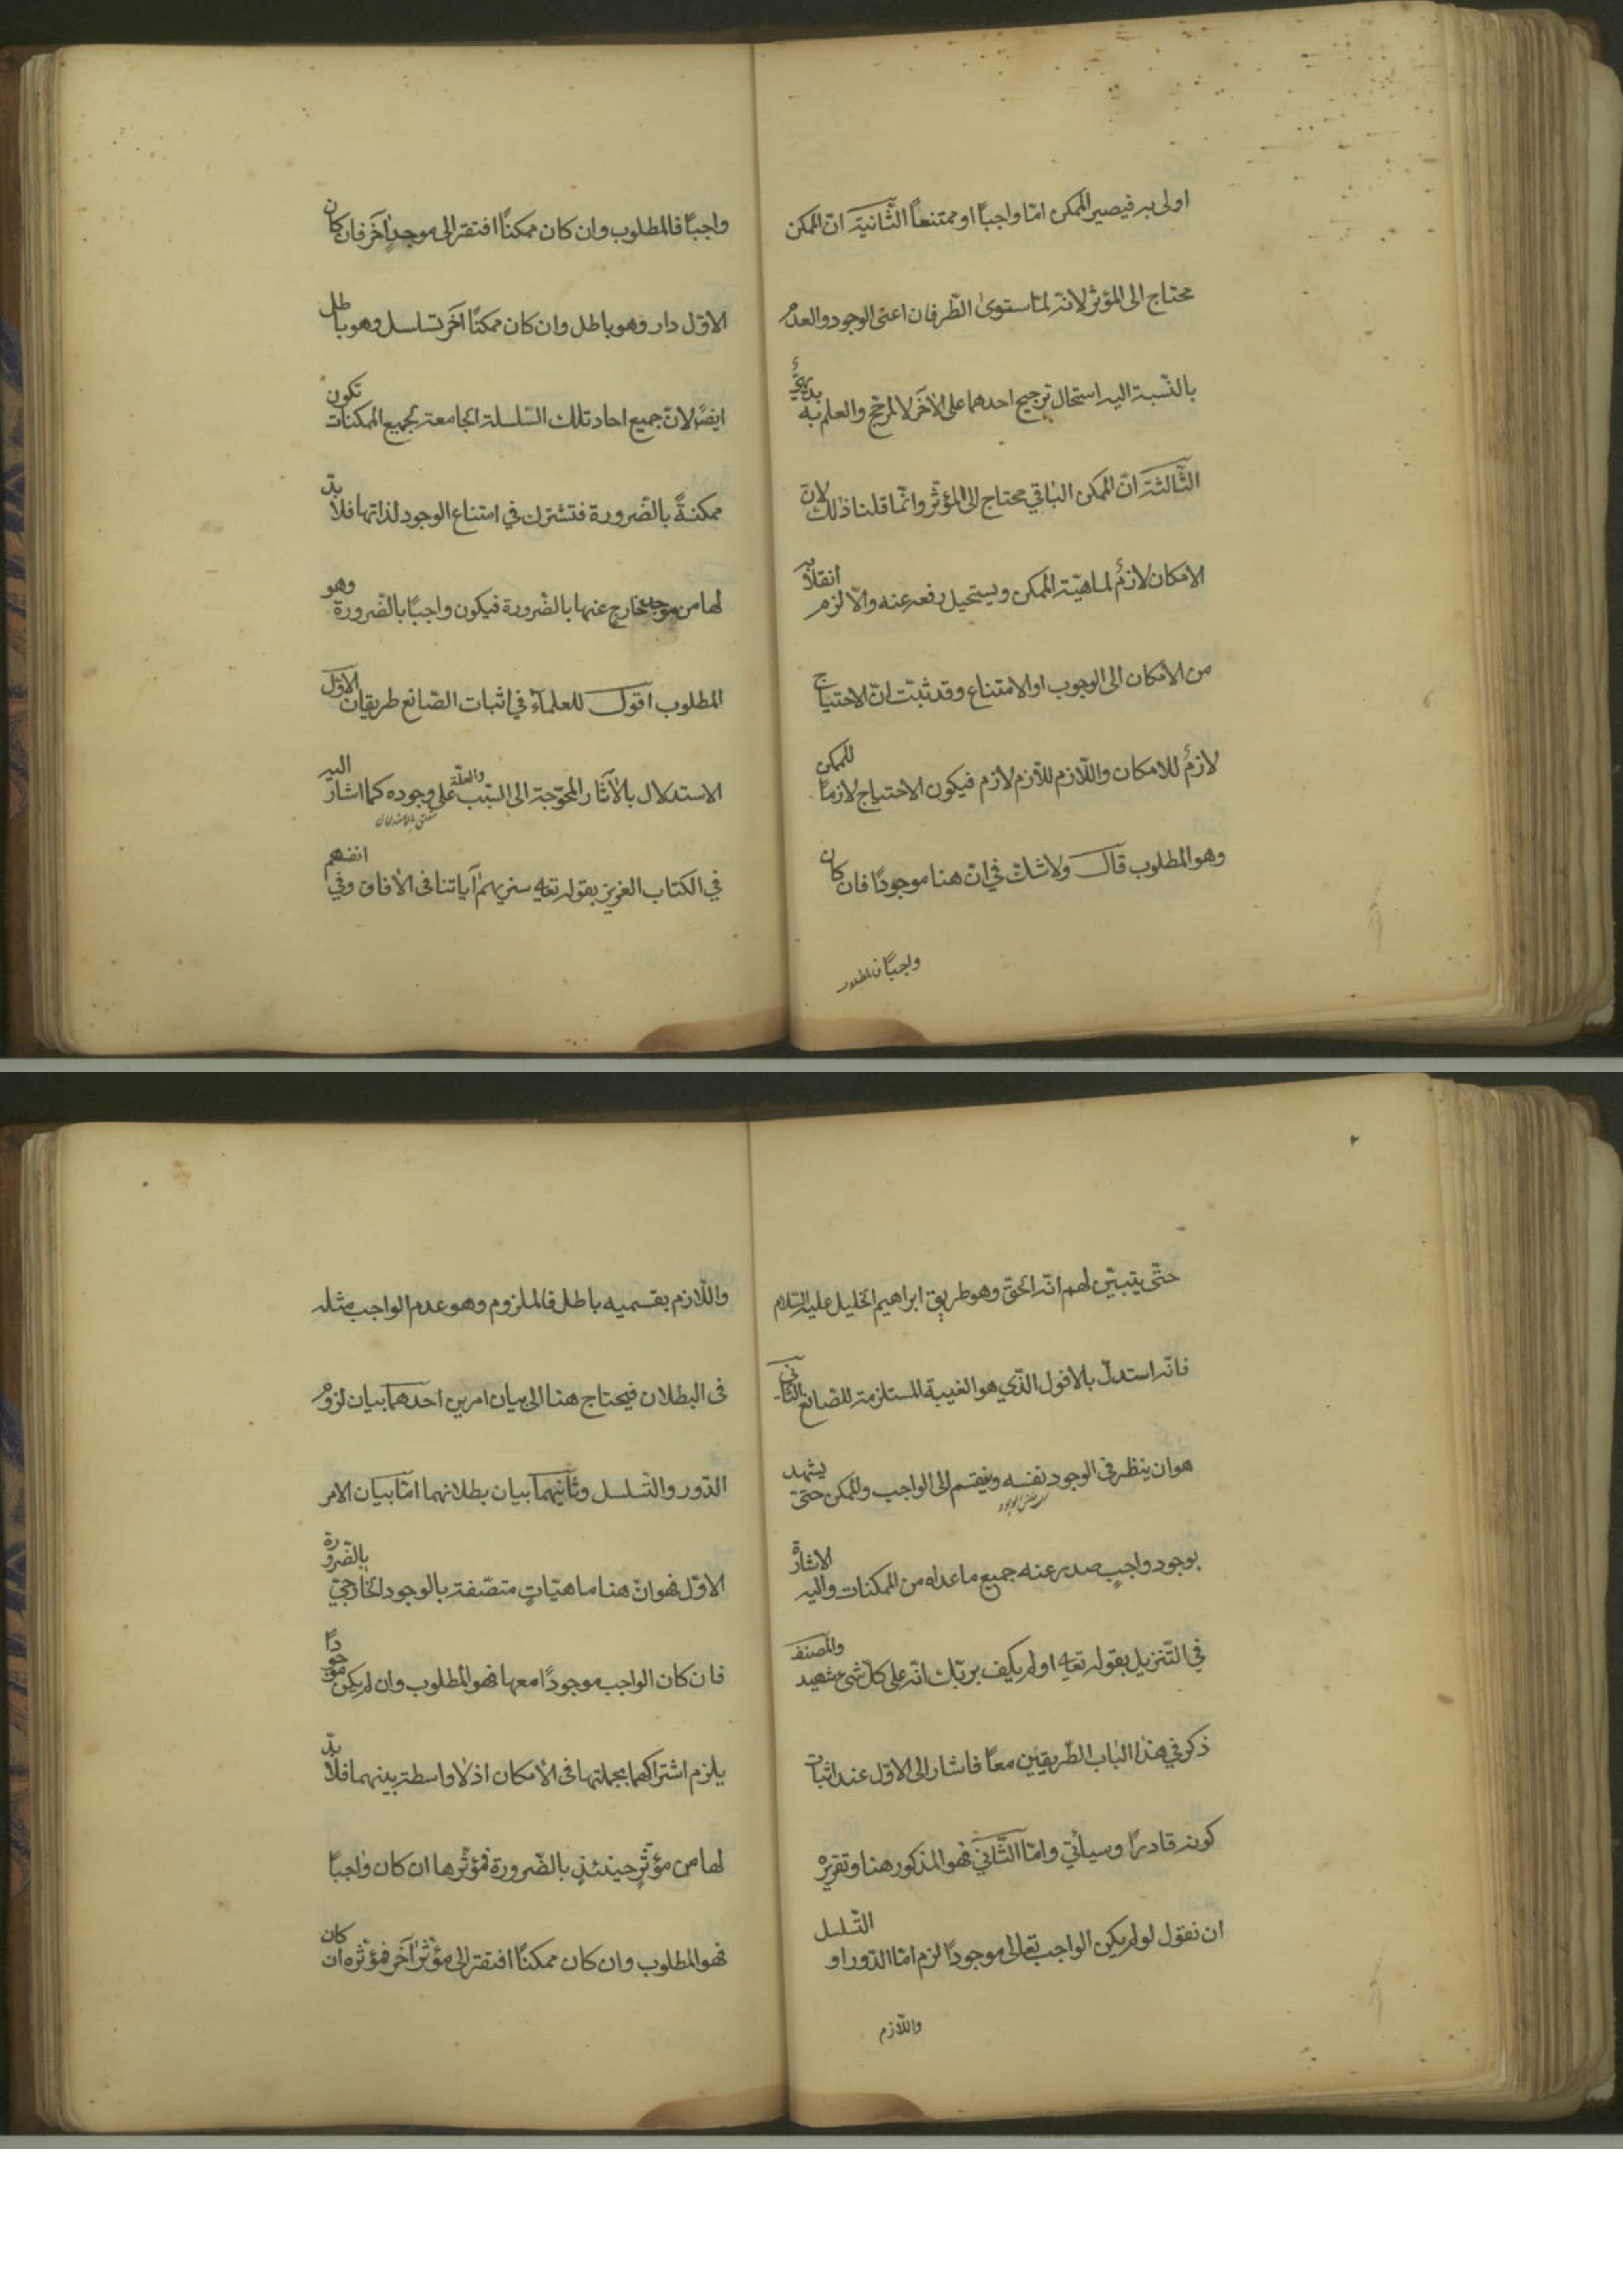 اولى به فيصير الممكن امّا واجبًا او ممتنعًا الثّانية انّ الممكن
محتاج الى المؤثر لانّه لمّا ستوى الطّرفان اعنى الوجود والعدم
بالنّسبة اليه استحال ترجيح احدهما على الآخر لا لمرجّح والعلم به بديهيّ
الثّالثة انّ الممكن الباقي محتاج الى المؤثّر وانّما قلنا ذلك لانّ
الامكان لازمٌ لماهيّة الممكن ويستحيل رفعه عنه والّا لزم انقلابه
من الامكان الى الوجوب او الامتناع وقد ثبت انّ الاحتياج
لازمٌ للامكان واللّازم للّازم لازم فيكون الاحتياج لازمًا للممكن
وهو المطلوب قال ولا شك في انّ هنا موجودًا فان كان
واجبًا فالمطلوب
واجبًا فالمطلوب وان كان ممكنًا افتقر الى موجدٍ آخر فان كان
الاوّل دار وهو باطل وان كان ممكنًا آخر تسلسل وهو باطل
ايضًا لانّ جميع احاد تلك السّلسلة الجامعة لجميع الممكنات تكون
ممكنةً بالضّرورة فتشترك في امتناع الوجود لذاتها فلا بدّ
لها من موجدٍ خارج عنها بالضّرورة فيكون واجبًا بالضّرورة وهو
المطلوب اقول للعلماء في اثبات الصّانع طريقان الاوّل
الاستدلال بالآثار المحوّجة الى السّبب والعلّة على وجوده كما اشار اليه
متعلق بالاستدلال
في الكتاب العزيز بقوله تعالى سنريهم آياتنا فى الافاق وفي انفسهم
حتّى يتبيّن لهم انّه الحقّ وهو طريق ابراهيم الخليل عليه السّلام
فانّه استدلّ بالافول الّذي هو الغيبة المستلزمة للصّانع الثّانى
هو ان ينظر فى الوجود نفسه ويقسم الى الواجب والممكن حتىّ يشهد
بوجود واجبٍ صدر عنه جميع ما عداه من الممكنات واليه الاشارة
في التّنزيل بقوله تعالى اولم يكف بربّك انّه على كلّ شئ شهيد والمصنف
ذكر في هذا الباب الطّريقين معًا فاشار الى الاوّل عند اثبات
كونه قادرًا وسيأتي وامّا الثّاني فهو المذكور هنا وتقريره
ان نقول لو لم يكن الواجب تعالى موجودًا لزم امّا الدّور او التّسلسل
واللّازم
واللّازم بقسميه باطل فالملزوم وهو عدم الواجب مثله
فى البطلان فيحتاج هنا الى بيان امرين احدهما بيان لزوم
الدّور والتّسلسل وثانيهما بيان بطلانهما امّا بيان الامر
الاوّل فهو انّ هنا ماهيّاتٍ متصّفة بالوجود الخارجيّ بالضّرورة
فان كان الواجب موجودًا معها فهو المطلوب وان لم يكن موجودًا
يلزم اشتراكها بجملتها فى الامكان اذ لا واسطة بينهما فلا بدّ
لها من مؤثّرٍ حينئذٍ بالضّرورة فمؤثّرها ان كان واجبًا
فهو المطلوب وان كان ممكنًا افتقر الى مؤثّر آخر فمؤثّره ان كان